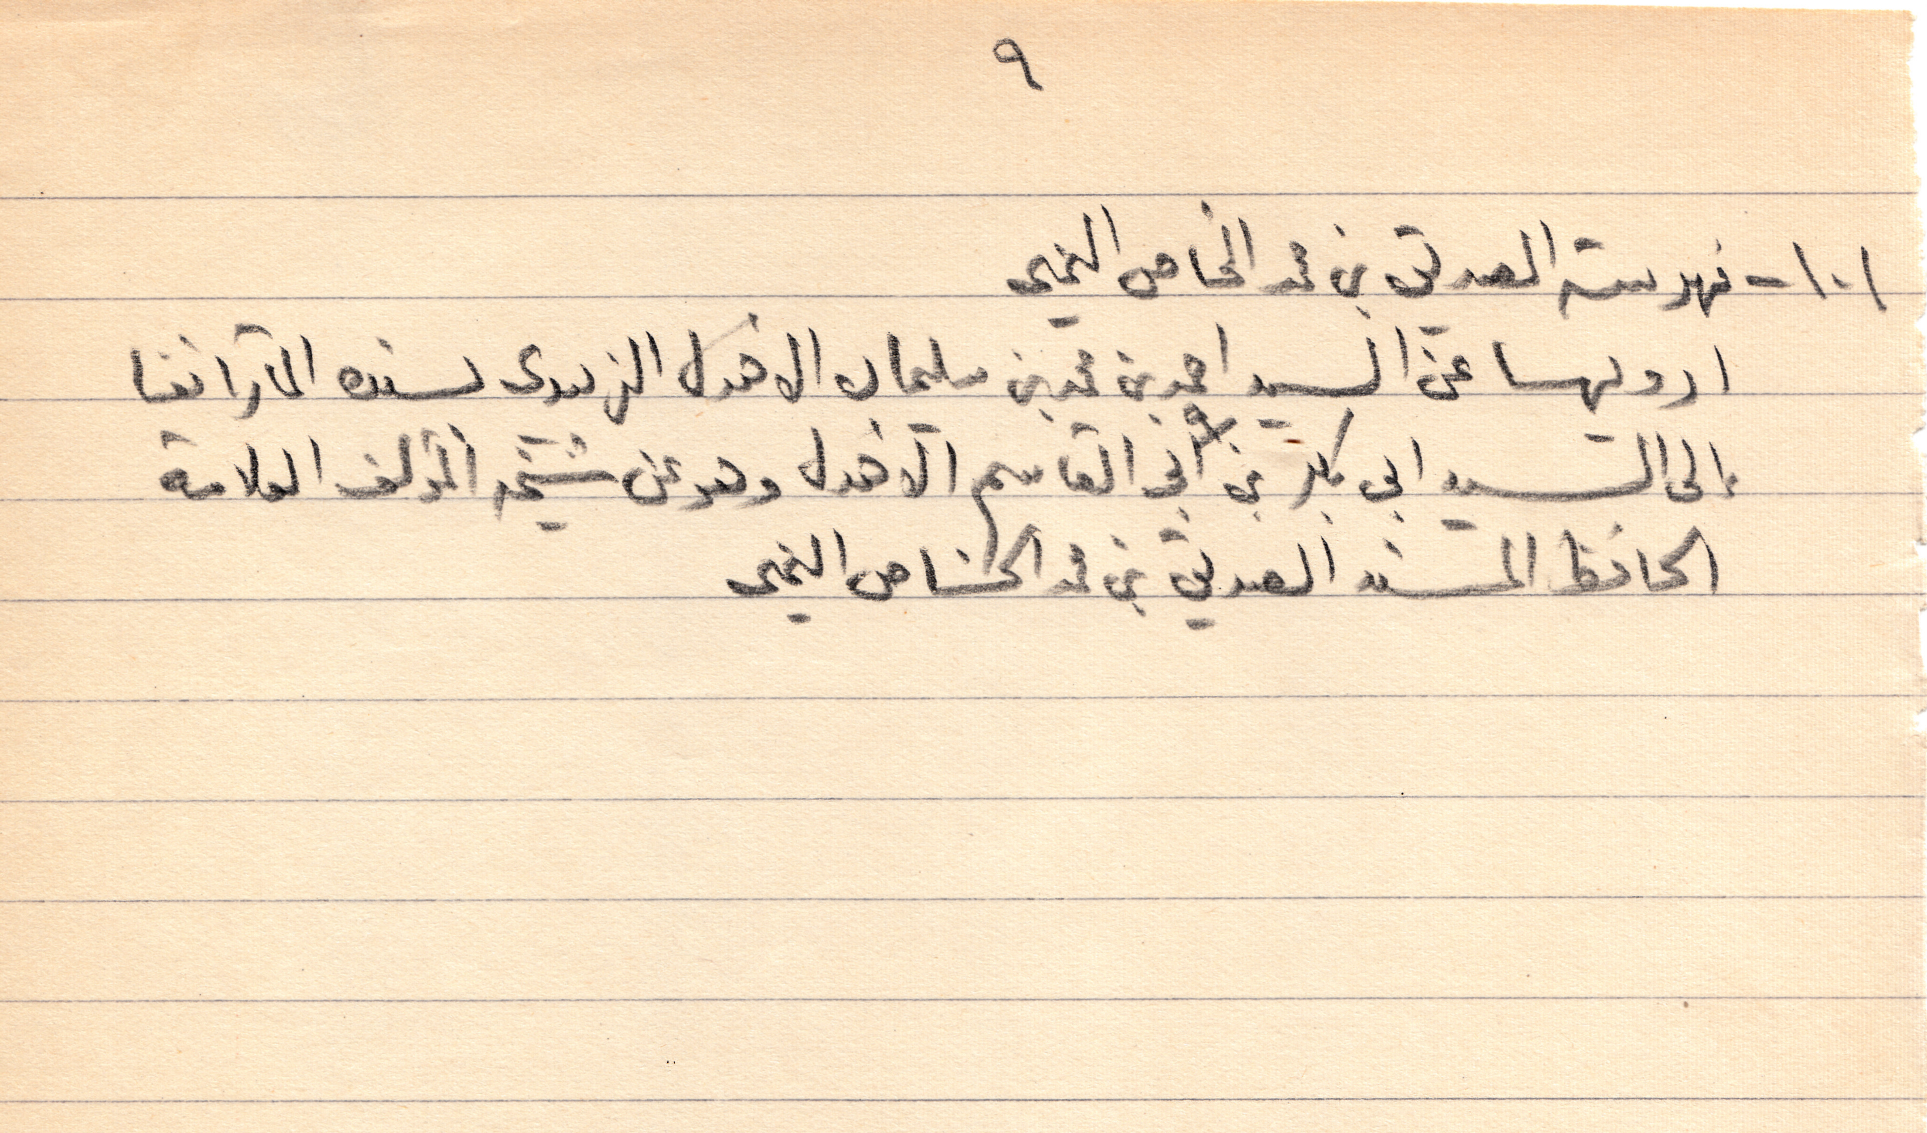 ٩
١٠١ - فهرسة الصديق بن محمد الخاص اليمني
ارويها عن السيد احمد بن محمد بن سليمان الاهدل الزبيدى بسنده المار آنفا
إلى السيد ابى بكر بن ابى القاسم الاهدل وهو عن شيخه المؤلف العلامة
الحافظ المسند الصديق بن محمد الخاص اليمنى